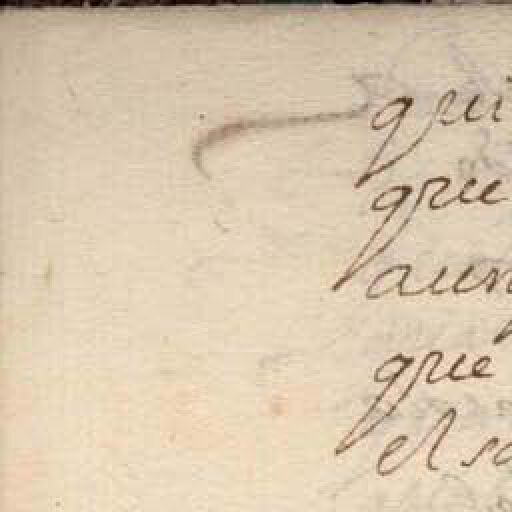 qui
que
aun
que
el sa